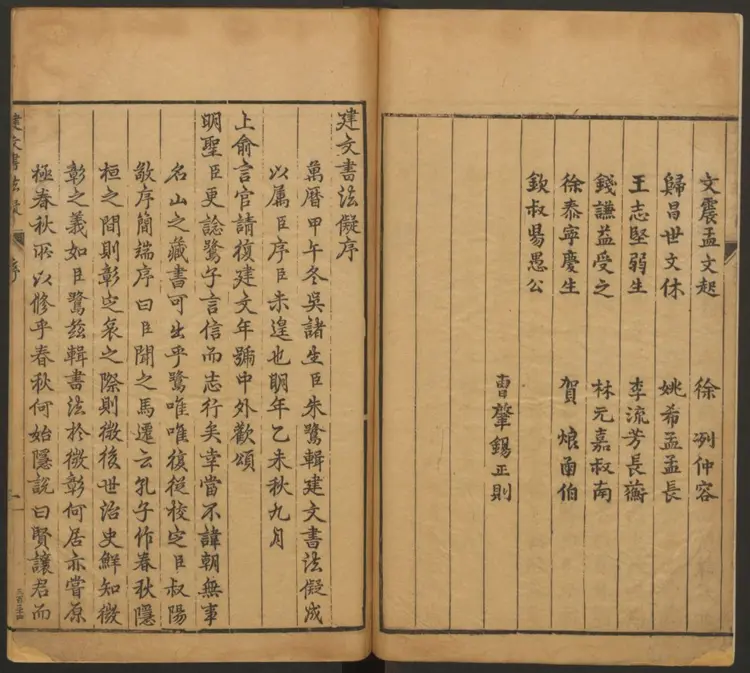 文震孟文起 徐冽仲容
歸昌世文休 姚希孟孟長
王志堅弱生 李流芳長蘅
錢謙益受之 林元嘉叔南
徐泰寧慶生 賀烺函伯
欽叔昜愚公
曹肇錫正則
建文書法儗序
萬曆甲午冬吳諸生臣朱鷺輯建文書法儗成
以属臣序臣未遑也明年乙未秋九月
上俞言官請復建文年號中外歡頌
明聖臣更諗鷺子言信而志行矣幸當不諱朝無事
名山之藏書可出乎鷺唯唯復從校定臣叔陽
敬序簡端序曰臣聞之馬遷云孔子作春秋隱
桓之間則彰定哀之際則微後世治史鮮知微
彰之義如臣鷺茲輯書法於微彰何居亦嘗原
極春秋所以修乎春秋何始隱說曰賢讓君而
建文書法儗 序 一